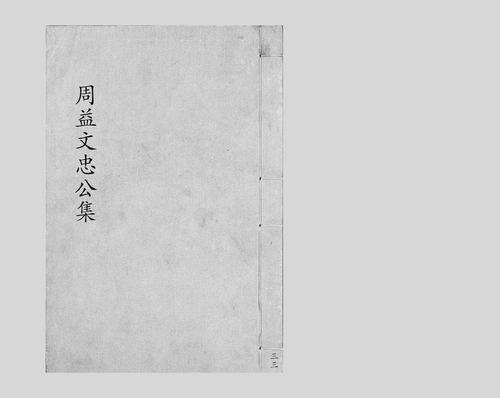 周益文忠公集
三三